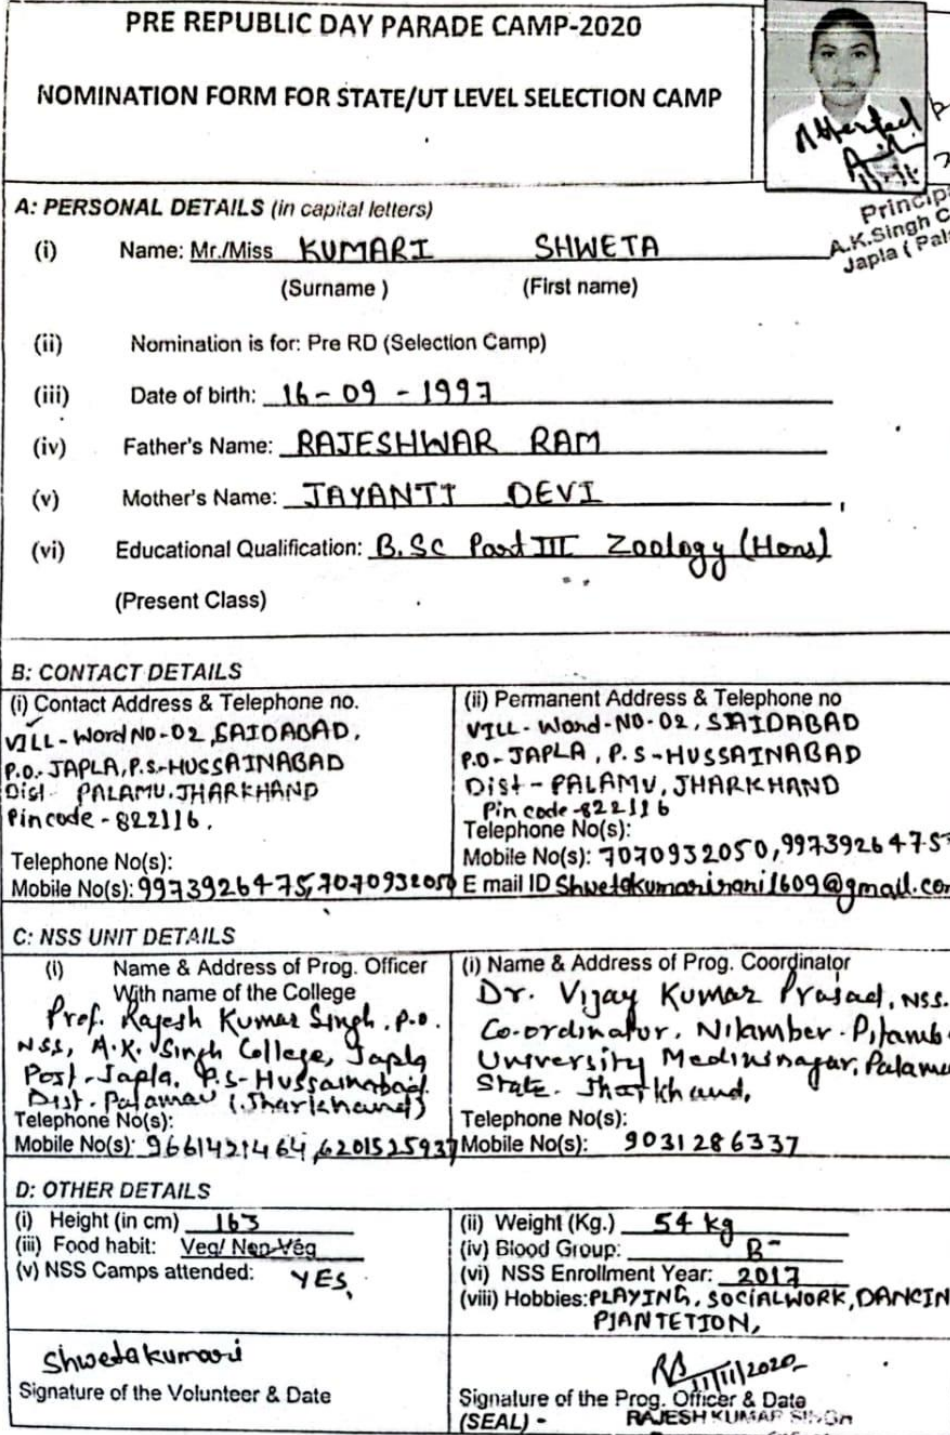 PRE REPUBLIC DAY PARADE CAMP-2020
NOMINATION FORM FOR STATE/UT LEVEL SELECTION CAMP
Attested
Princip
A.K.Singh C
Japla ( Pal
A: PERSONAL DETAILS (in capital letters)
(i) Name: Mr./Miss KUMARI SHWETA
(Surname ) (First name)
(ii) Nomination is for: Pre RD (Selection Camp)
(iii) Date of birth: 16-09-1997
(iv) Father's Name: RAJESHWAR RAM
(v) Mother's Name: JAYANTI DEVI
(vi) Educational Qualification: B.Sc Part III Zoology (Hons)
(Present Class)
B: CONTACT DETAILS
(i) Contact Address & Telephone no.
VILL-Word NO-02, SAIDABAD,
P.O.-JAPLA, P.S.-HUSSAINABAD
Dist- PALAMU, JHARKHAND
Pincode-822116.
Telephone No(s):
Mobile No(s): 9973926475, 7070932050
(ii) Permanent Address & Telephone no
VILL-Word-NO-02, SAIDABAD
P.O-JAPLA, P.S-HUSSAINABAD
Dist-PALAMU, JHARKHAND
Pin code-822116
Telephone No(s):
Mobile No(s): 7070932050, 9973926475
E mail ID Shwetakumarirani1609@gmail.com
C: NSS UNIT DETAILS
(i) Name & Address of Prog. Officer
With name of the College
Prof. Rajesh Kumar Singh, P.O.
NSS, A.K. Singh College, Japla
Post-Japla, P.S-Hussainabad
Dist. Palamau (Jharkhand)
Telephone No(s):
Mobile No(s): 9661421464, 6201525937
(i) Name & Address of Prog. Coordinator
Dr. Vijay Kumar Prasad, NSS.
Co-ordinator, Nilamber-Pitamb
University Medininagar, Palamu
State. Jharkhand,
Telephone No(s):
Mobile No(s): 9031286337
D: OTHER DETAILS
(i) Height (in cm) 163
(iii) Food habit: Veg/ Non-Veg
(v) NSS Camps attended: YES,
(ii) Weight (Kg.) 54 kg
(iv) Blood Group: B-
(vi) NSS Enrollment Year: 2017
(viii) Hobbies: PLAYING, SOCIALWORK, DANCIN
PIANTETION,
Shweta kumari
Signature of the Volunteer & Date
11/11/2020
Signature of the Prog. Officer & Date
(SEAL) - RAJESH KUMAR SINGH